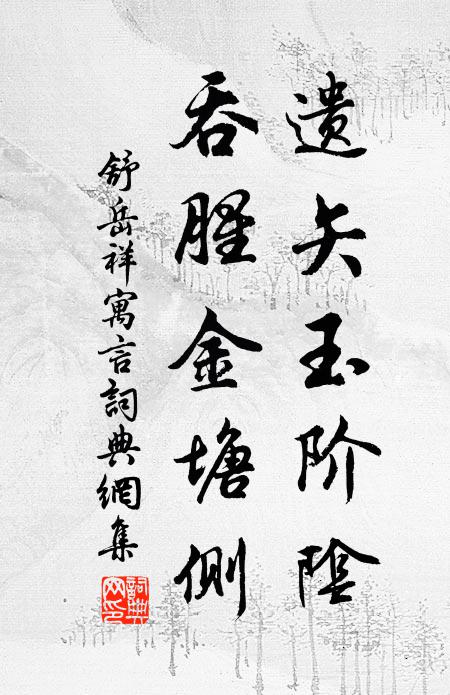 遗矢玉阶阴
吞腥金塘侧
舒岳祥寓言詞典網集
詞典網印